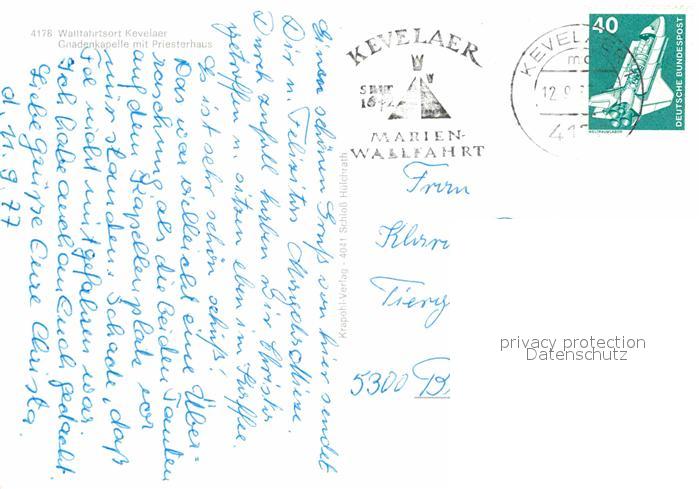 4178 Wallfahrtsort Kevelaer
Gnadenkapelle mit Priesterhaus
KEVELAER
SEIT
1642
MARIEN-
WALLFAHRT
KEVELA
12.9.
41
40
DEUTSCHE BUNDESPOST
WELTRAUMLABOR
Krapohl-Verlag - 4041 Schloß Hülchrath
Einen schönen Gruß von hier sendet
Dir u. Felizitas
Durch Zufall haben wir Christa
getroffen u. sitzen eben im Kaffee.
Es ist sehr schön
Das war vielleicht eine Über-
raschung als die beiden Tanten
auf dem Kapellenplatz vor
mir standen. Schade, daß
Fee nicht mitgefahren war.
Ich habe auch an Euch gedacht.
Liebe Grüße Eure Christa.
d. 11.9.77
Frau
Klara
Tierg
5300 B
privacy protection
Datenschutz